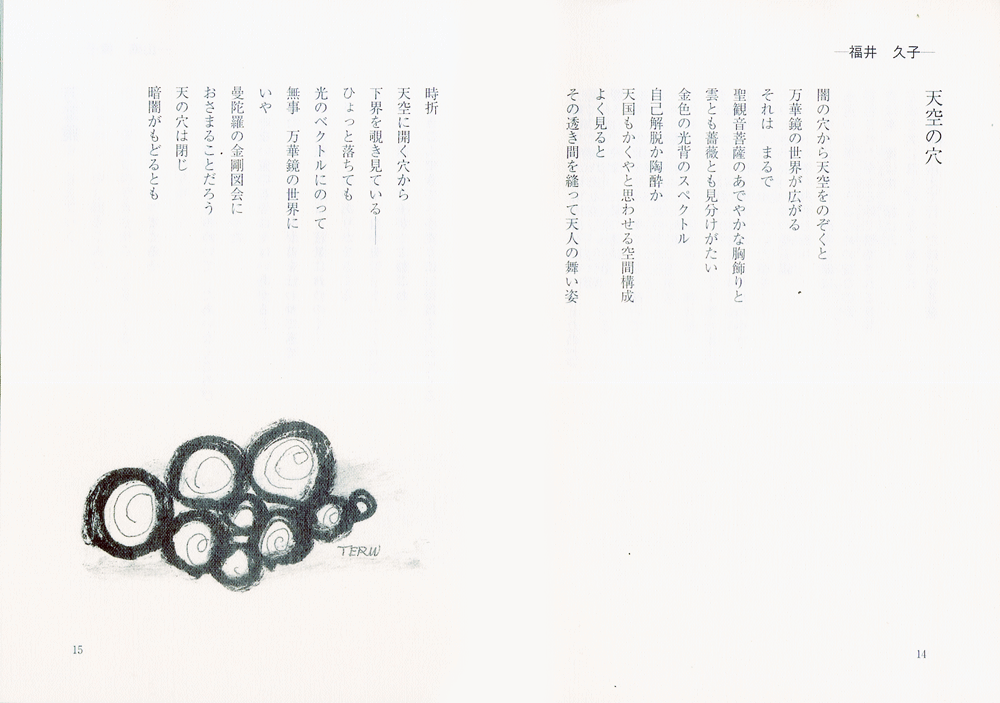 ―福井　久子―
天空の穴
闇の穴から天空をのぞくと
万華鏡の世界が広がる
それは　まるで
聖観音菩薩のあでやかな胸飾りと
雲とも薔薇とも見分けがたい
金色の光背のスペクトル
自己解脱か陶酔か
天国もかくやと思わせる空間構成
よく見ると
その透き間を縫って天人の舞い姿
14
時折
天空に開く穴から
下界を覗き見ている――
ひょっと落ちても
光のベクトルにのって
無事　万華鏡の世界に
いや
曼陀羅の金剛図会に
おさまることだろう
天の穴は閉じ
暗闇がもどるとも
TERU
15